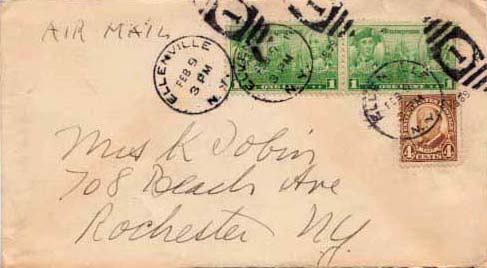 AIR MAIL
ELLENVILLE N.Y.
FEB 9
3 PM
1 ONE CENT 1
1 ONE CENT 1
ELLENVILLE N.Y.
4 CENTS 4
Miss K Tobin
708 Beach Ave
Rochester NY.